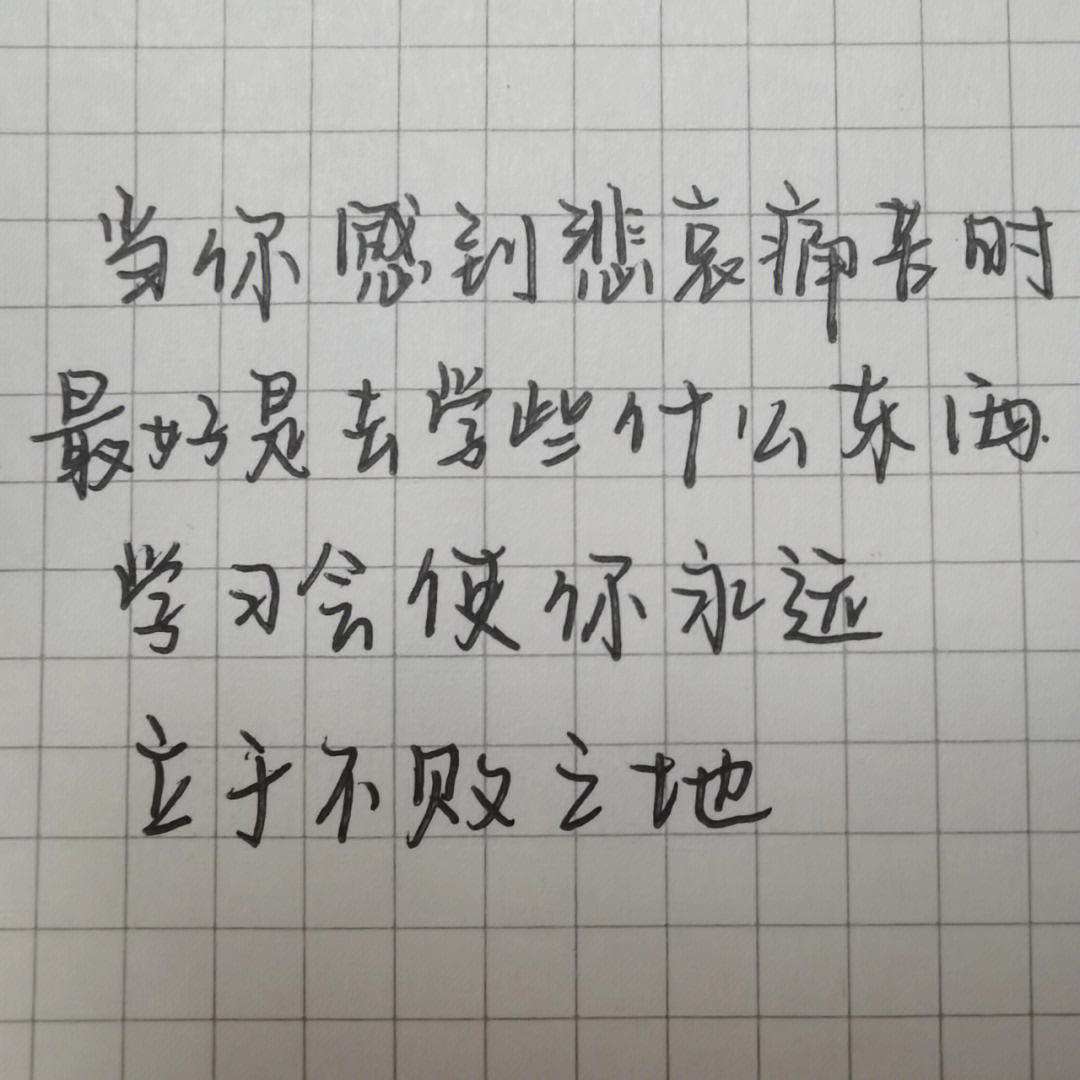 当你感到悲哀痛苦时
最好是去学些什么东西.
学习会使你永远
立于不败之地